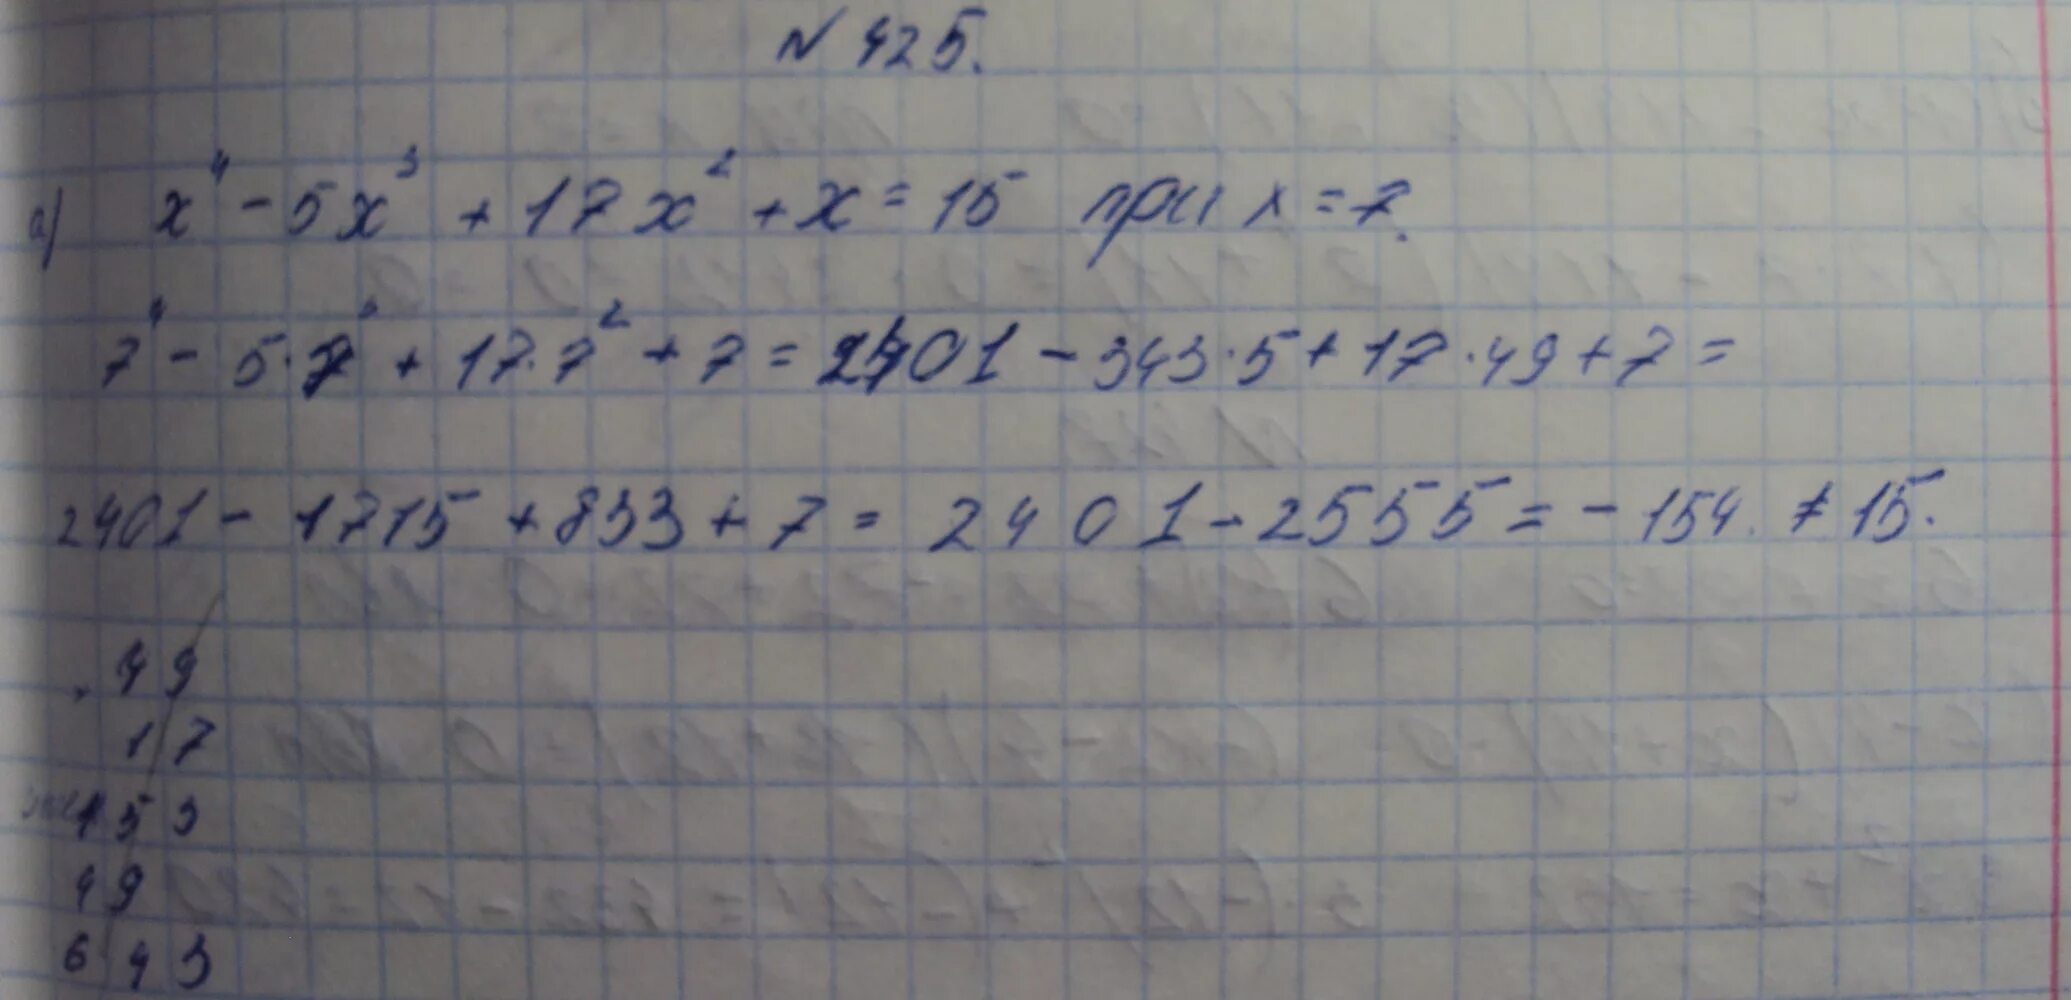 № 425.
а) x⁴ - 5x³ + 17x² + x = 15 при x = 7.
7⁴ - 5·7³ + 17·7² + 7 = 2401 - 343·5 + 17·49 + 7 =
2401 - 1715 + 833 + 7 = 2401 - 2555 = - 154. ≠ 15.
49
17
153
49
643